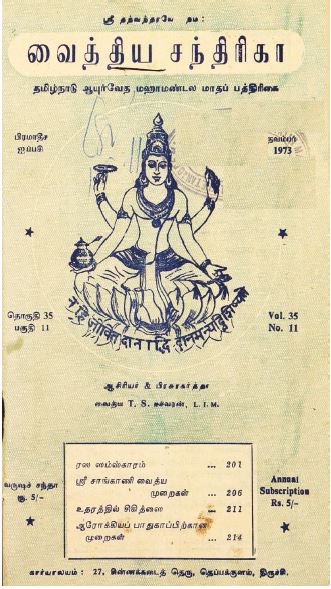 ஸ்ரீ தந்வந்தரயே நம:
வைத்திய சந்திரிகா
தமிழ்நாடு ஆயுர்வேத மஹாமண்டல மாதப் பத்திரிகை
பிரமாதீச
ஐப்பசி
நவம்பர்
1973
தொகுதி 35
பகுதி 11
Vol. 35
No. 11
ஆசிரியர் & பிரசுரகர்த்தா
வைத்ய T. S. ஈச்வரன், L. I. M.
வருஷச் சந்தா
ரூ. 5/-
ரஸ ஸம்ஸ்காரம் ... 201
ஸ்ரீ சாங்காணி வைத்ய
முறைகள் ... 206
உதரத்தில் சிகித்ஸை ... 211
ஆரோக்கியப் பாதுகாப்பிற்கான
முறைகள் ... 214
Annual
Subscription
Rs. 5/-
கார்யாலயம் : 27, சின்னக்கடைத் தெரு, தெப்பக்குளம், திருச்சி.